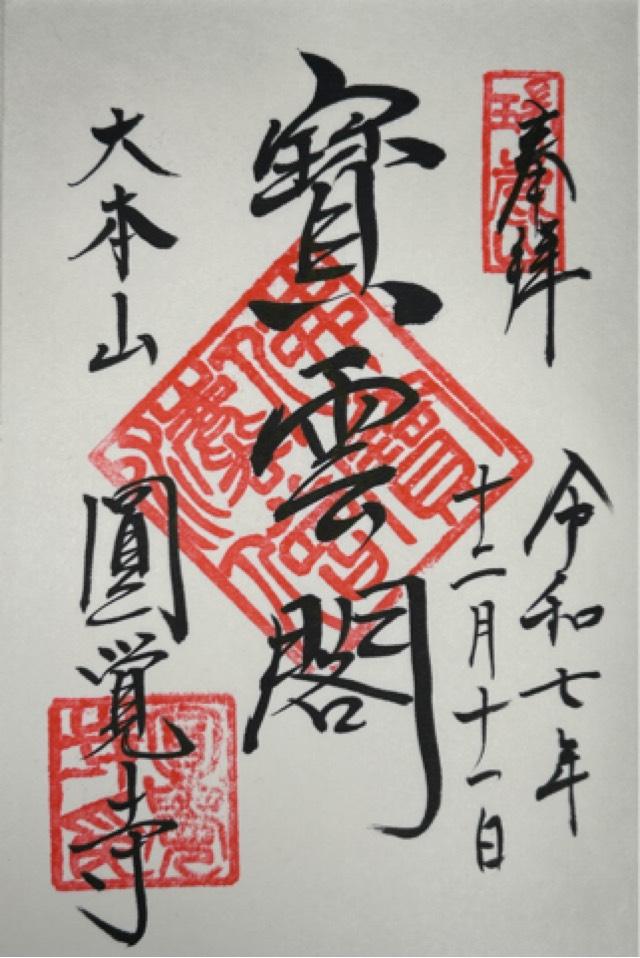 奉拝
令和七年
十二月十一日
寶雲閣
大本山
圓覺寺